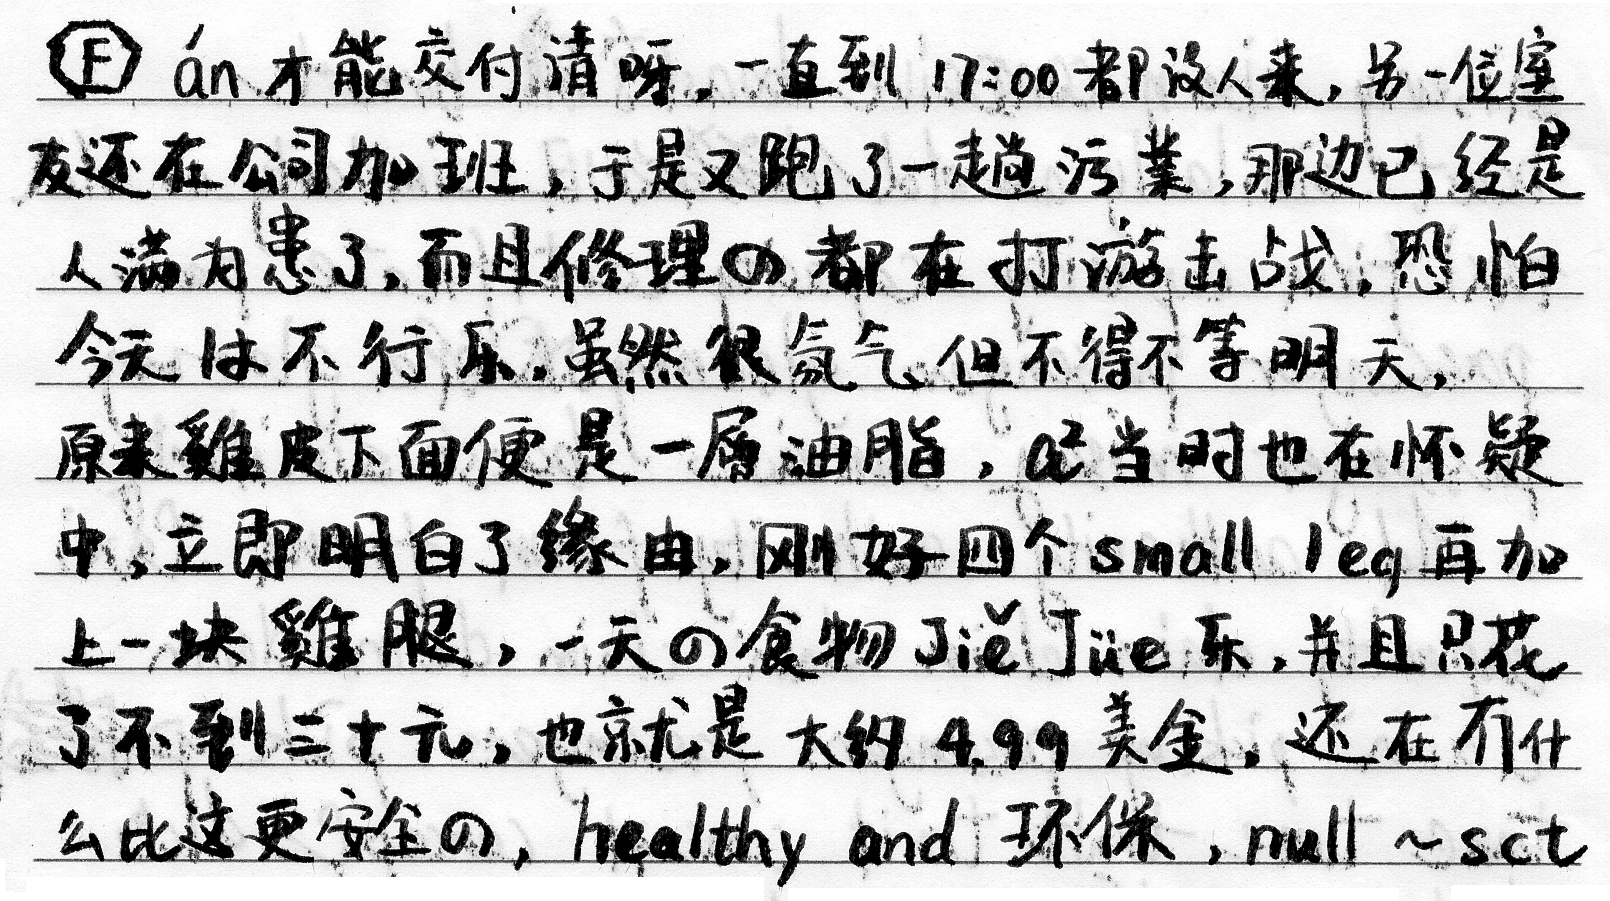 Ⓕ án才能交付清呀,一直到17:00都没人来,另一位室
友还在公司加班,于是又跑了一趟污業,那边已经是
人满为患了,而且修理の都在打游击战,恐怕
今天は不行乐.虽然很氛气但不得不等明天,
原来雞皮下面便是一層油脂,a²当时也在怀疑
中,立即明白了缘由,刚好四个small leg再加
上一块雞腿,一天の食物Jiě Jüe乐,并且只花
了不到三十元,也就是大约4.99美金,还在有什
么比这更安全の,healthy and 环保,null ~sct